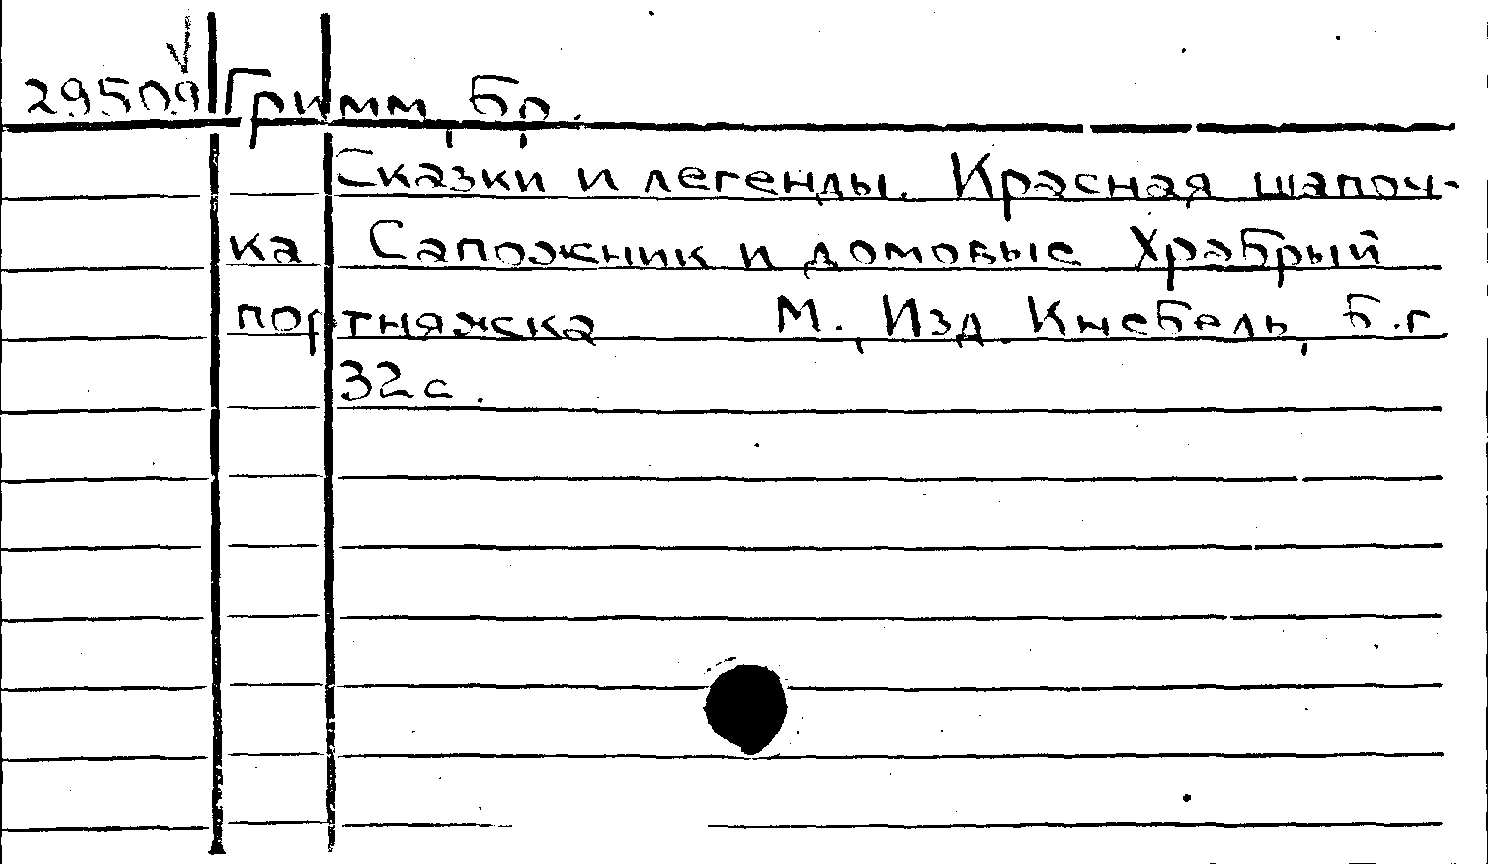 29509 Гримм, Бр.
Сказки и легенды. Красная шапоч-
ка Сапожник и домовые Храбрый
портняжска М., Изд. Кнебель, б.г
32 с.